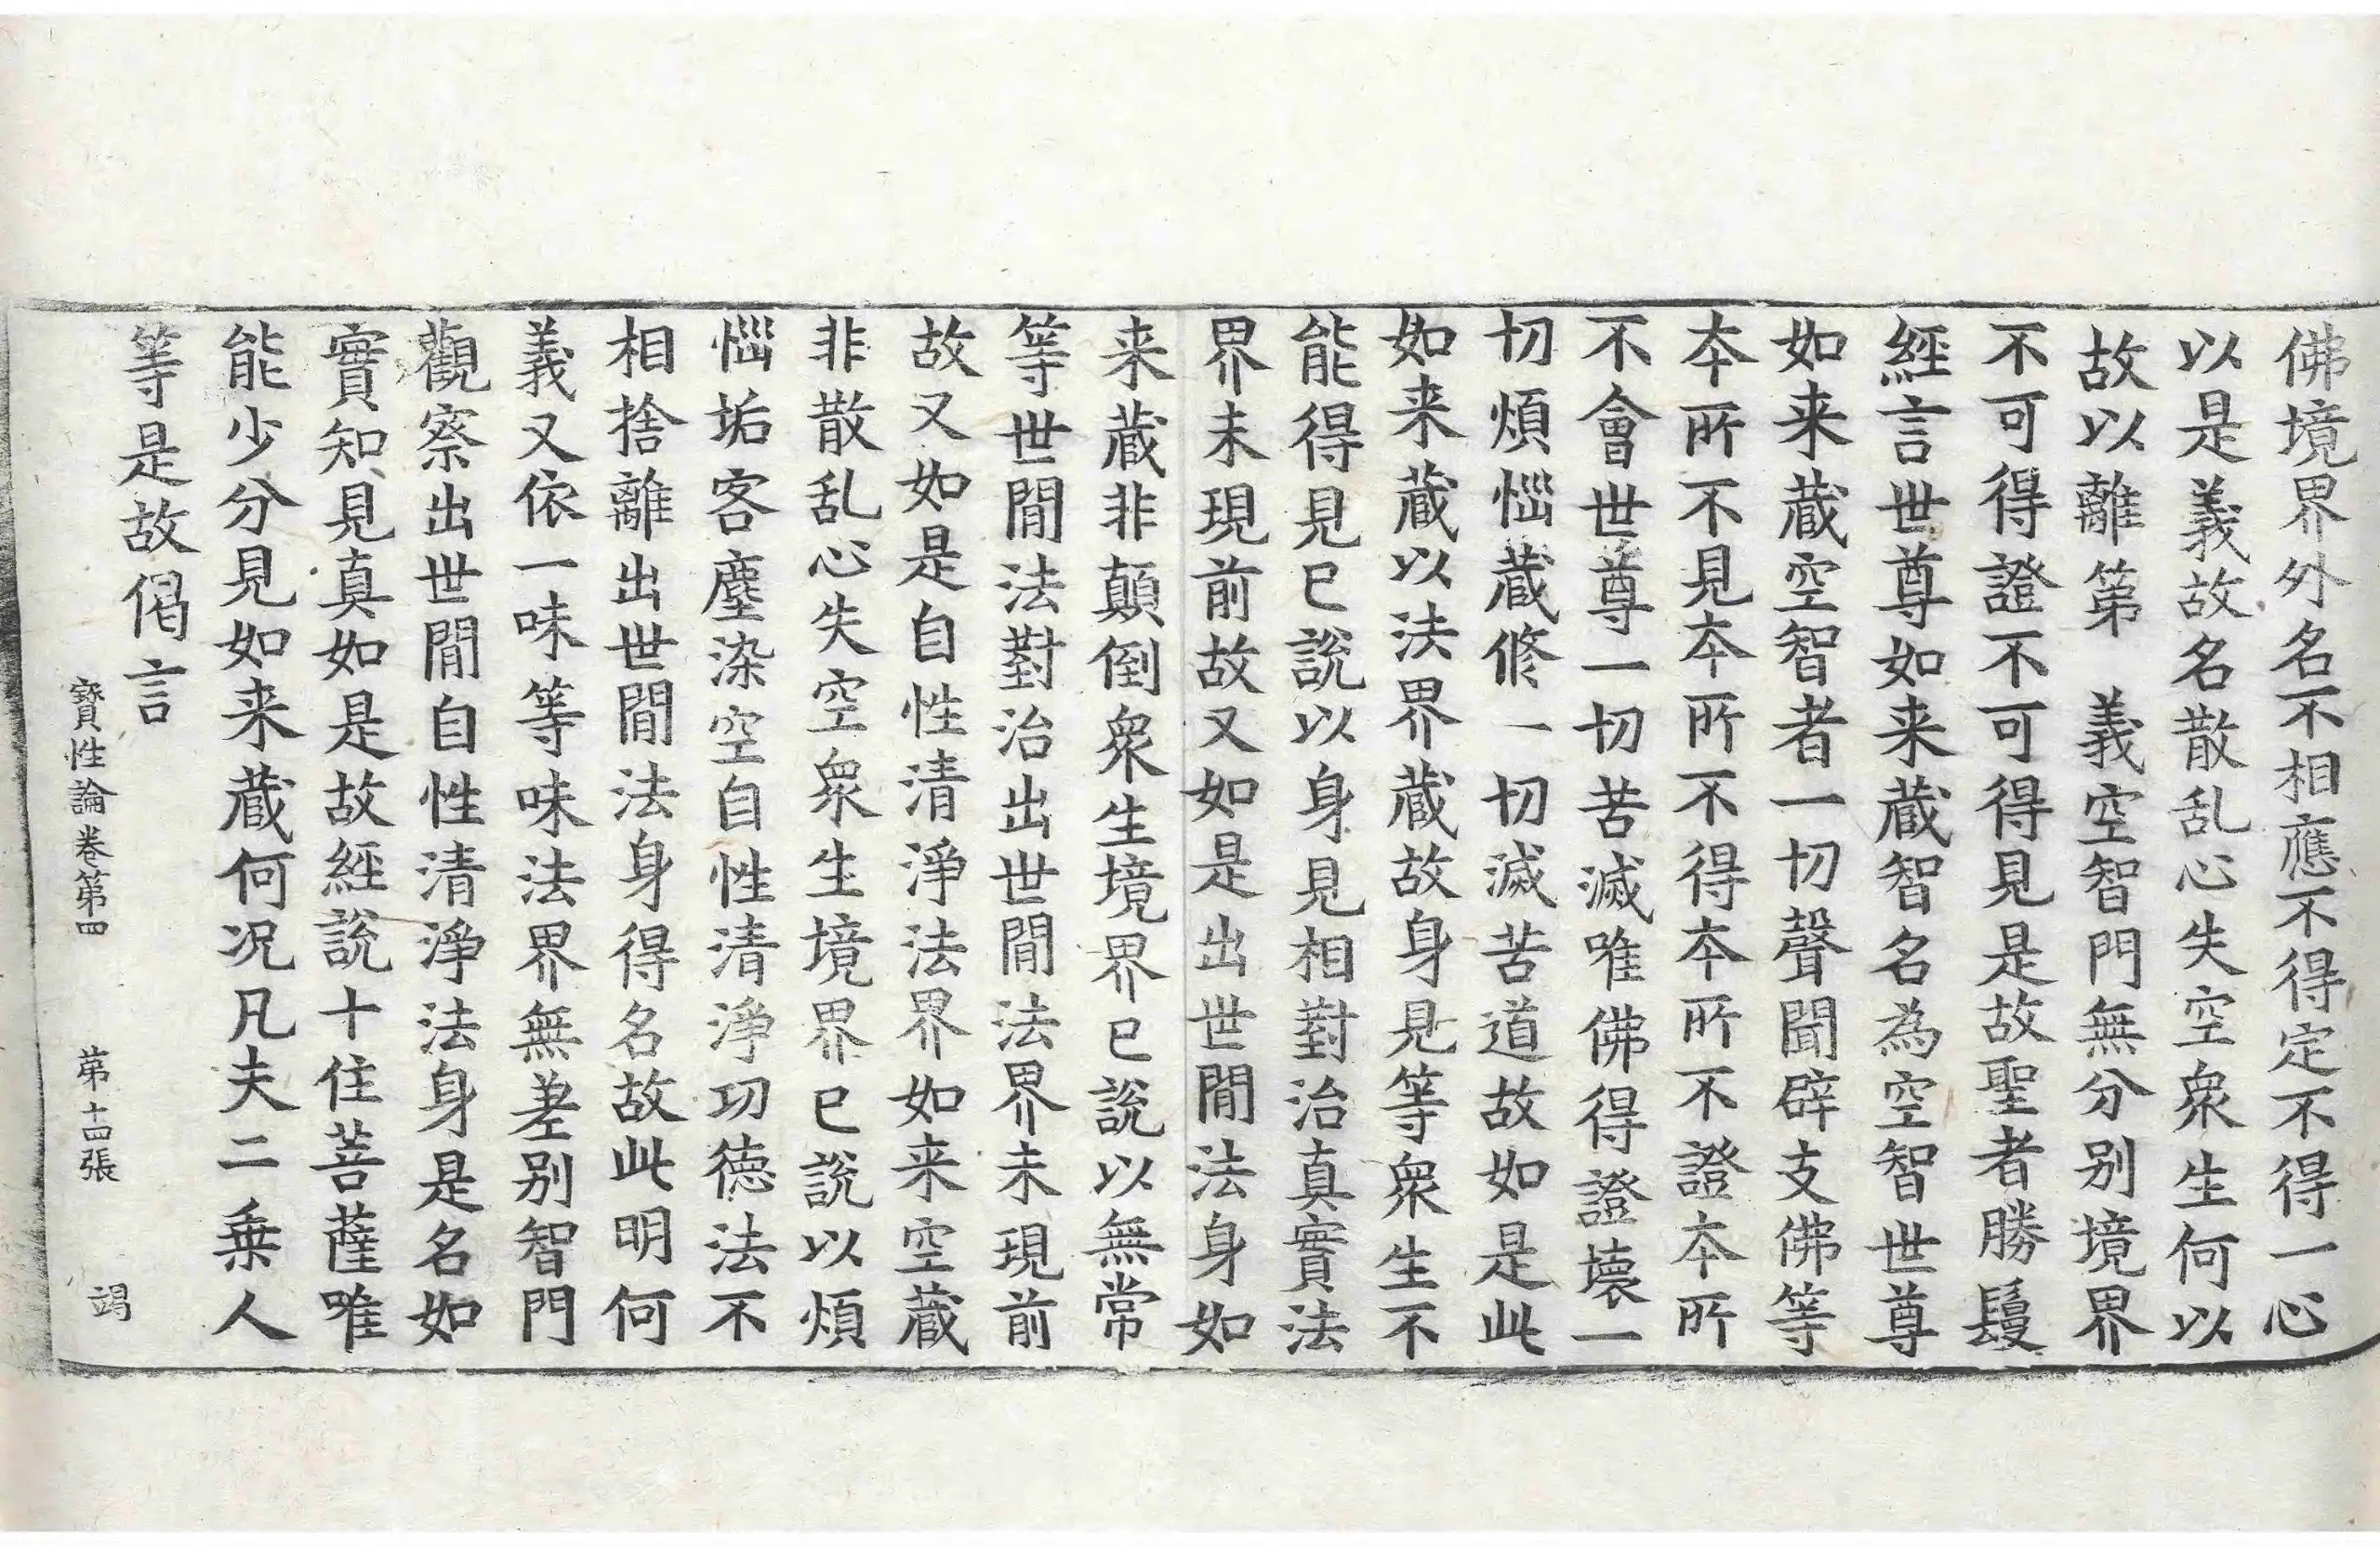 佛境界外名不相應不得定不得一心
以是義故名散乱心失空衆生何以
故以離第　義空智門無分別境界
不可得證不可得見是故聖者勝鬘
經言世尊如来藏智名為空智世尊
如来藏空智者一切聲聞辟支佛等
本所不見本所不得本所不證本所
不會世尊一切苦滅唯佛得證壞一
切煩惱藏修一切滅苦道故如是此
如来藏以法界藏故身見等衆生不
能得見已說以身見相對治真實法
界未現前故又如是出世間法身如
来藏非顛倒衆生境界已說以無常
等世間法對治出世間法界未現前
故又如是自性清淨法界如来空藏
非散乱心失空衆生境界已說以煩
惱垢客塵染空自性清淨功德法不
相捨離出世間法身得名故此明何
義又依一味等味法界無差別智門
觀察出世間自性清淨法身是名如
實知見真如是故經說十住菩薩唯
能少分見如来藏何況凡夫二乗人
等是故偈言
寶性論卷第四　第十四張　竭